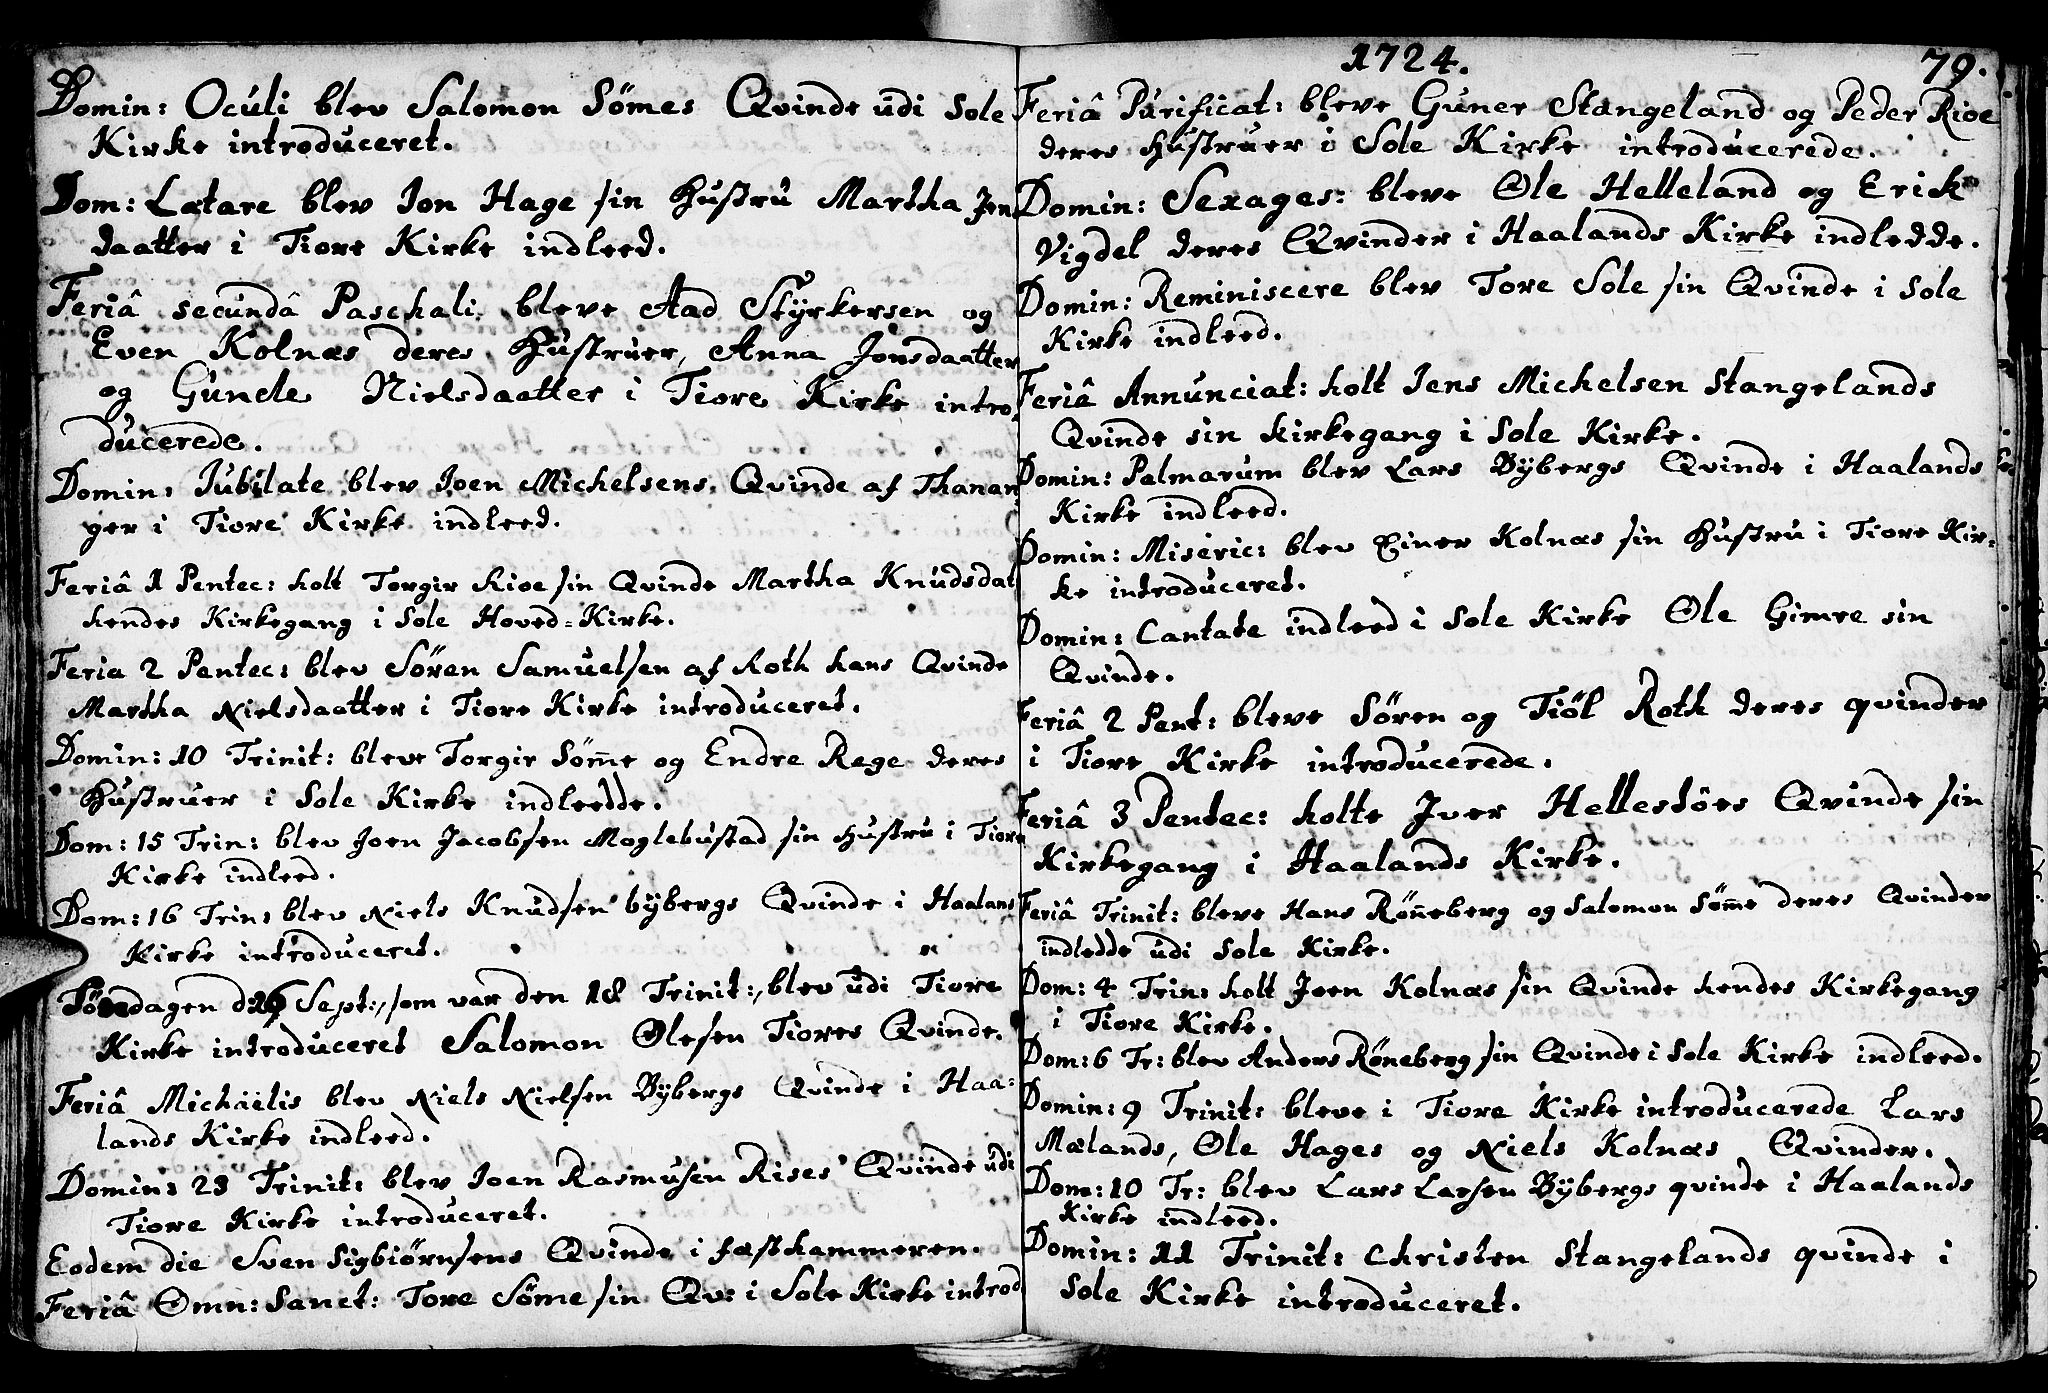 Domin: Oculi blev Salomon Sömes Qvinde udi Sole
Kirke introduceret.
Dom: Lætare blev Jon Hage sin Hustru Martha Jens
daatter i Tiore Kirke indleed.
Feriâ secundâ Paschali bleve Aad Styrkersen og
Even Kolnæs deres Hustruer, Anna Jonsdaatter
og Gunele Nielsdaatter i Tiore Kirke intro-
ducerede.
Domin: Jubilate blev Joen Michelsens Qvinde af Thanan
ger i Tiore Kirke indleed.
Feriâ 1 Pentec: holt Torgir Rioe sin Qvinde Martha Knudsdat
hendes Kirkegang i Sole Hoved-Kirke.
Feria 2 Pentec: blev Sören Samuelsen af Roth hans Qvinde
Martha Nielsdaatter i Tiore Kirke introduceret.
Domin: 10 Trinit: bleve Torgir Söm̄e og Endre Rege deres
Hustruer i Sole Kirke indleedde.
Dom: 15 Trin: blev Joen Jacobsen Moglebustad sin Hustru i Tiore
Kirke indleed.
Dom: 16 Trin: blev Niels Knudsen bÿbergs Qvinde i Haalans
Kirke introduceret.
Söndagen d: 26 Sept:, som var den 18 Trinit:, blev udi Tiore
Kirke introduceret Salomon Olesen Tiores Qvinde.
Feriâ Michaelis blev Niels Nielsen Bÿbergs Qvinde i Haa-
lands Kirke indleed.
Domin: 23 Trinit: blev Joen Rasmusen Rises Qvinde udi
Tiore Kirke introduceret.
Eodem die Sven Sigbiørnsens Qvinde i fæsthammeren.
Feriâ Omn: Sanct: Tore Söme sin Qv: i Sole Kirke introd
1724. 79.
Feriâ Purificat: bleve Guner Stangeland og Peder Rioe
deres Hustruer i Sole Kirke introducerede.
Domin: Sexages: bleve Ole Helleland og Erick
Vigdel deres Qvinder i Haalands Kirke indledde.
Domin: Reminiscere blev Tore Sole sin Qvinde i Sole
Kirke indleed.
Feriâ Annunciat: holt Jens Michelsen Stangelands
Qvinde sin kirkegang i Sole Kirke.
Domin: Palmarum blev Lars Bÿbergs Qvinde i Haalands
Kirke indleed.
Domin: Miseric: blev Einer Kolnæs sin Hustru i Tiore Kir-
ke introduceret.
Domin: Cantate indleed i Sole Kirke Ole Gimre sin
Qvinde.
Feriâ 2 Pent: bleve Søren og Tiøl Roth deres qvinder
i Tiore Kirke introducerede.
Feriâ 3 Pentec: holte Iver Hellestöes Qvinde sin
Kirkegang i Haalands Kirke.
Feriâ Trinit: bleve Hans Røn̄eberg og Salomon Söm̄e deres Qvinder
indledde udi Sole Kirke.
Dom: 4 Trin: holt Joen Kolnæs sin Qvinde hendes Kirkegang
i Tiore Kirke.
Dom: 6 Tr: blev Anders Røneberg sin Qvinde i Sole Kirke indleed.
Domin: 9 Trinit: bleve i Tiore Kirke introducerede Lars
Mælands, Ole Hages og Niels Kolnæs Qvinder.
Dom: 10 Tr: blev Lars Larsen Bÿbergs qvinde i Haalands
Kirke indleed.
Domin: 11 Trinit: Christen Stangelands qvinde i
Sole Kirke introduceret.